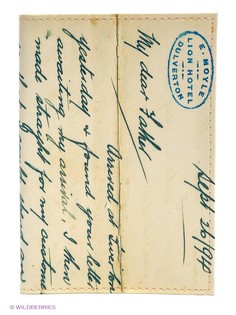 E. MOYLE
LION HOTEL
DULVERTON
Sept 26/1910
My dear Father
Arrived at Tiverton
yesterday & found your letter
awaiting my arrival, I then
made straight for my
© WILDBERRIES